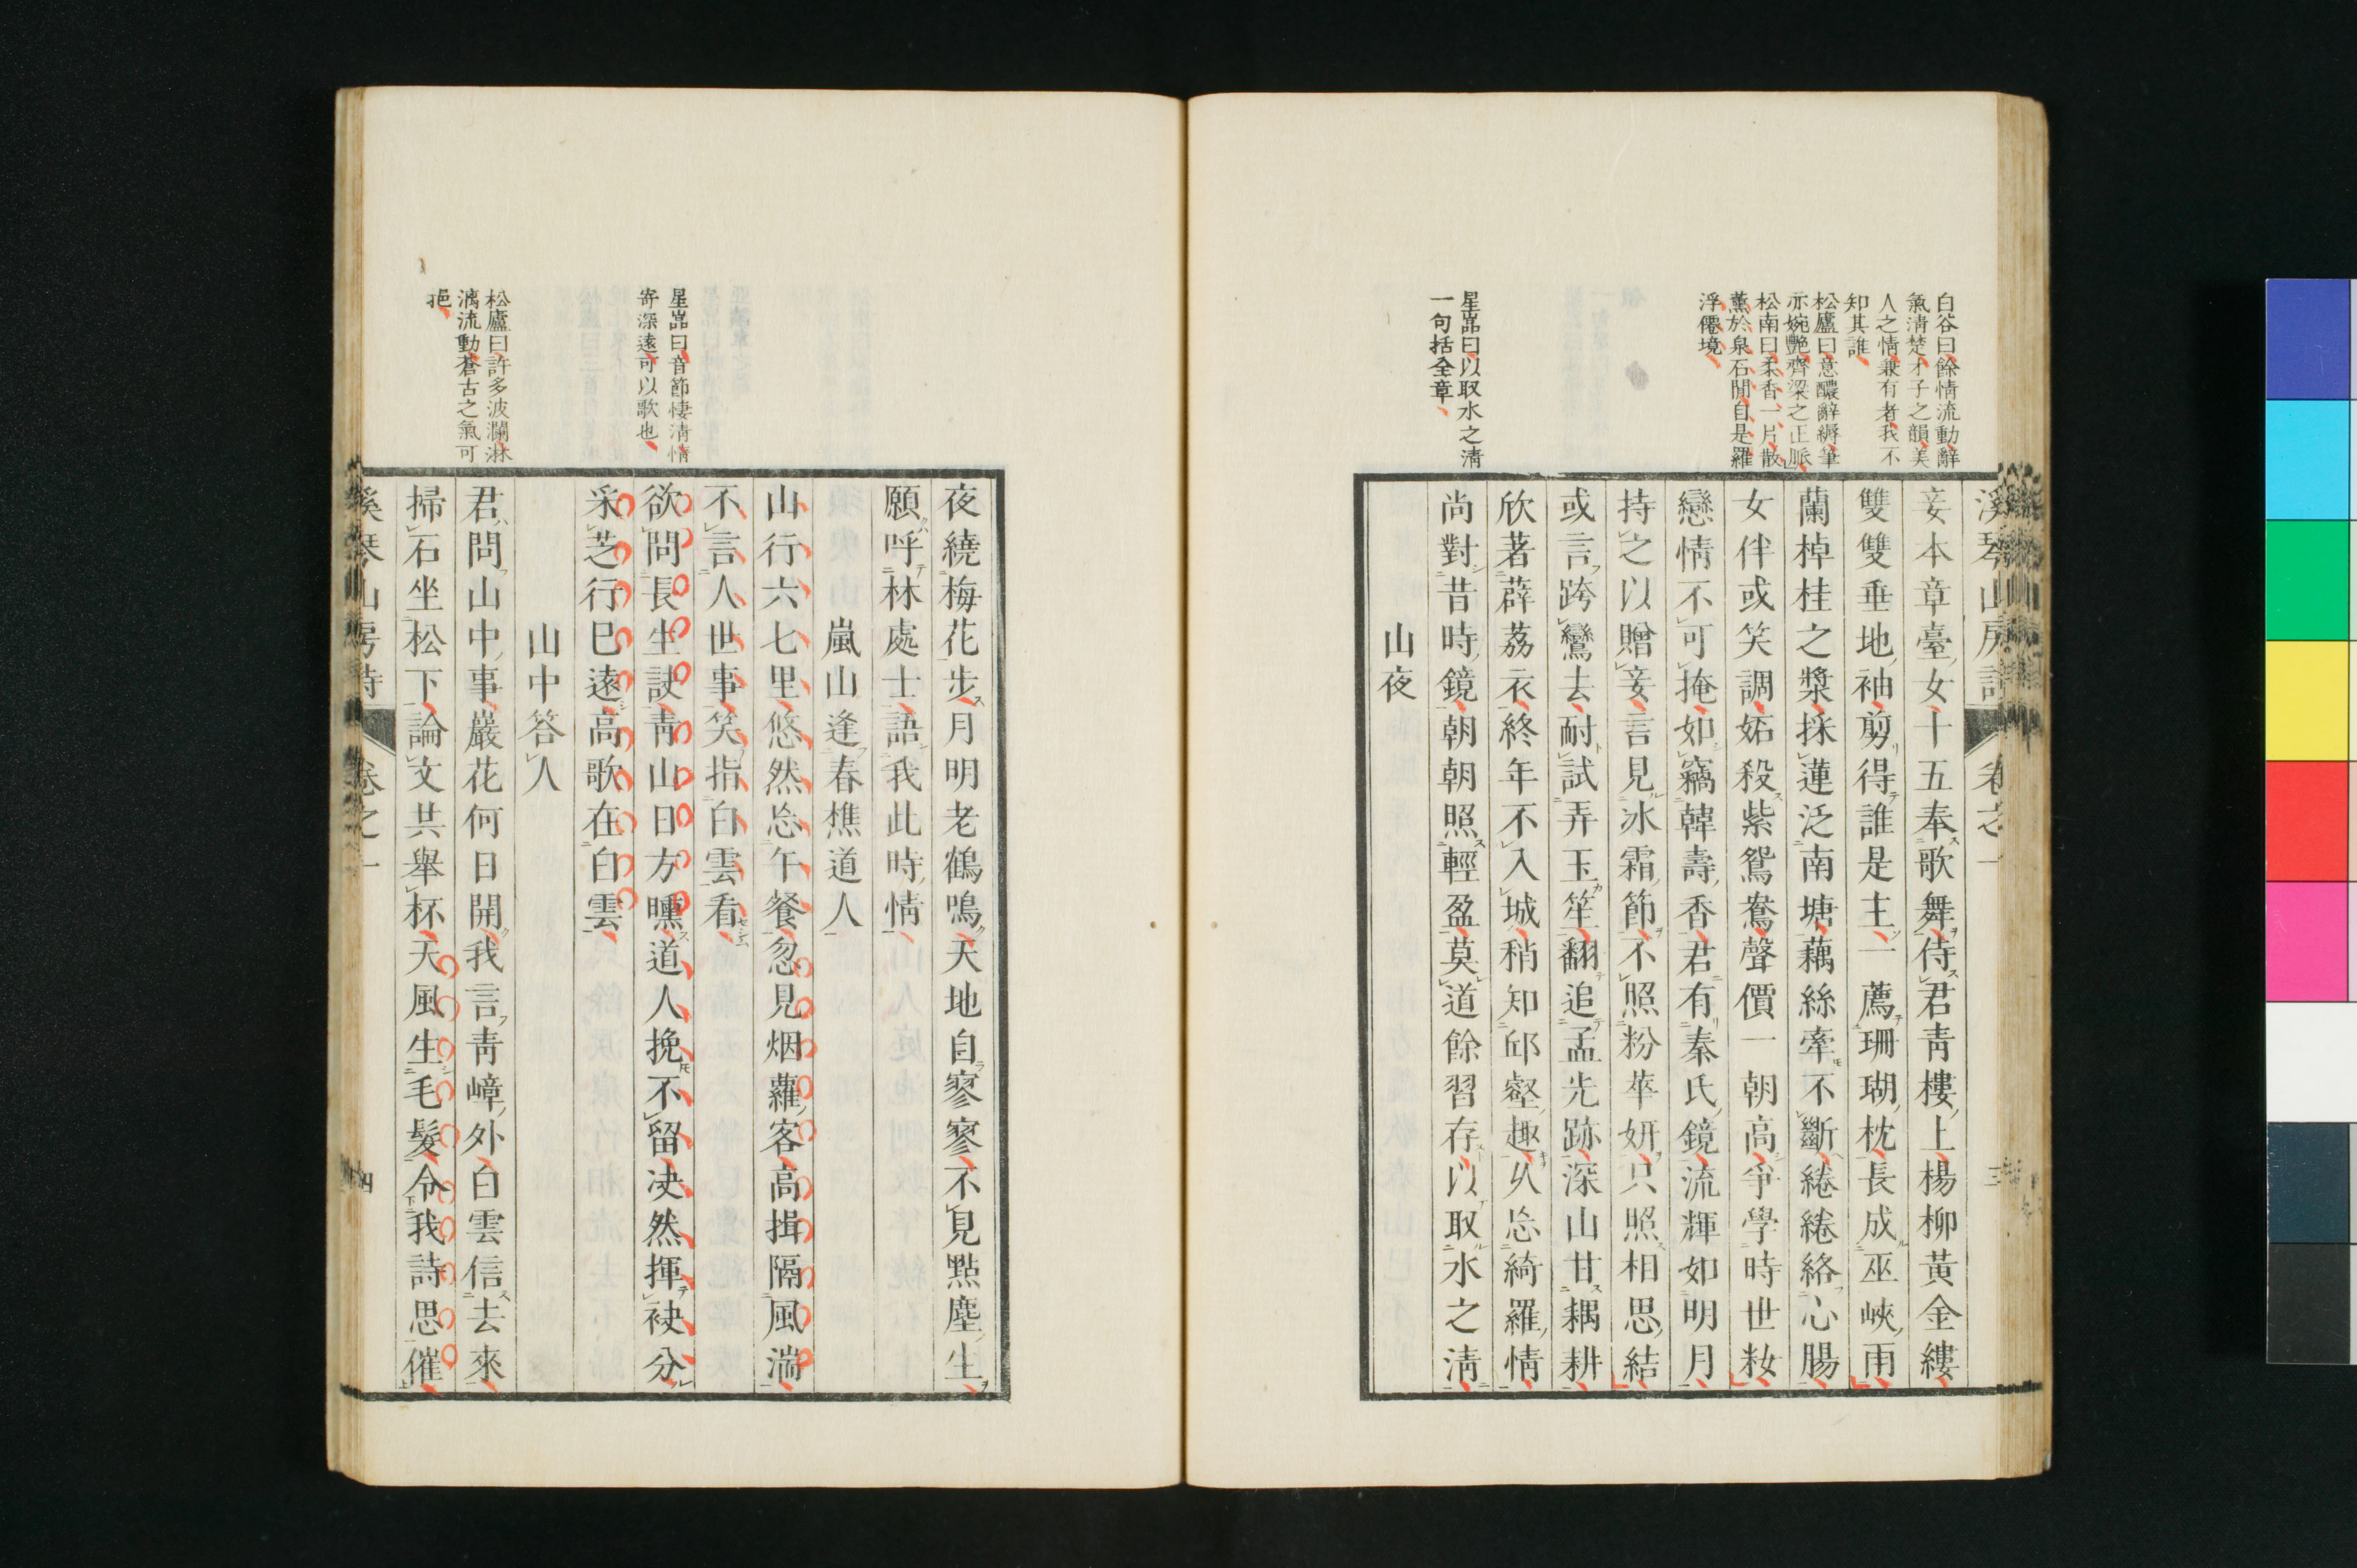 白谷曰餘情流動辭
氣淸楚才子之韻美
人之情兼有者我不
知其誰
松廬曰意醲辭縟筆
亦婉艷齊梁之正脈
松南曰柔香一片散
薰於泉石閒自是羅
浮僊境
星嵓曰以取水之淸
一句括全章
溪琴山房詩 卷之一
妾本章臺女十五奉歌舞侍君靑樓上楊柳黃金縷
雙雙垂地袖剪得誰是主一薦珊瑚枕長成巫峽雨
蘭棹桂之漿採蓮泛南塘藕絲牽不斷綣綣絡心腸
女伴或笑調妬殺紫鴛鴦聲價一朝高爭學時世妝
戀情不可掩如竊韓壽香君有秦氏鏡流輝如明月
持之以贈妾言見冰霜節不照粉華妍只照相思結
或言跨鸞去耐試弄玉笙翻追孟光跡深山甘耦耕
欣著薜荔衣終年不入城稍知邱壑趣久忘綺羅情
尚對昔時鏡朝朝照輕盈莫道餘習存以取水之淸
山夜
星嵓曰音節悽淸情
寄深遠可以歌也
松廬曰許多波瀾淋
漓流動蒼古之氣可
挹
夜繞梅花步月明老鶴鳴天地自寥寥不見點塵生
願呼林處士語我此時情
嵐山逢春樵道人
山行六七里悠然忘午餐忽見烟蘿客高揖隔風湍
不言人世事笑指白雲看
欲問長生訣靑山日方曛道人挽不留決然揮袂分
采芝行已遠高歌在白雲
山中答人
君問山中事巖花何日開我言靑嶂外白雲信去來
掃石坐松下論文共舉杯天風生毛髮令我詩思催
溪琴山房詩 卷之一 四